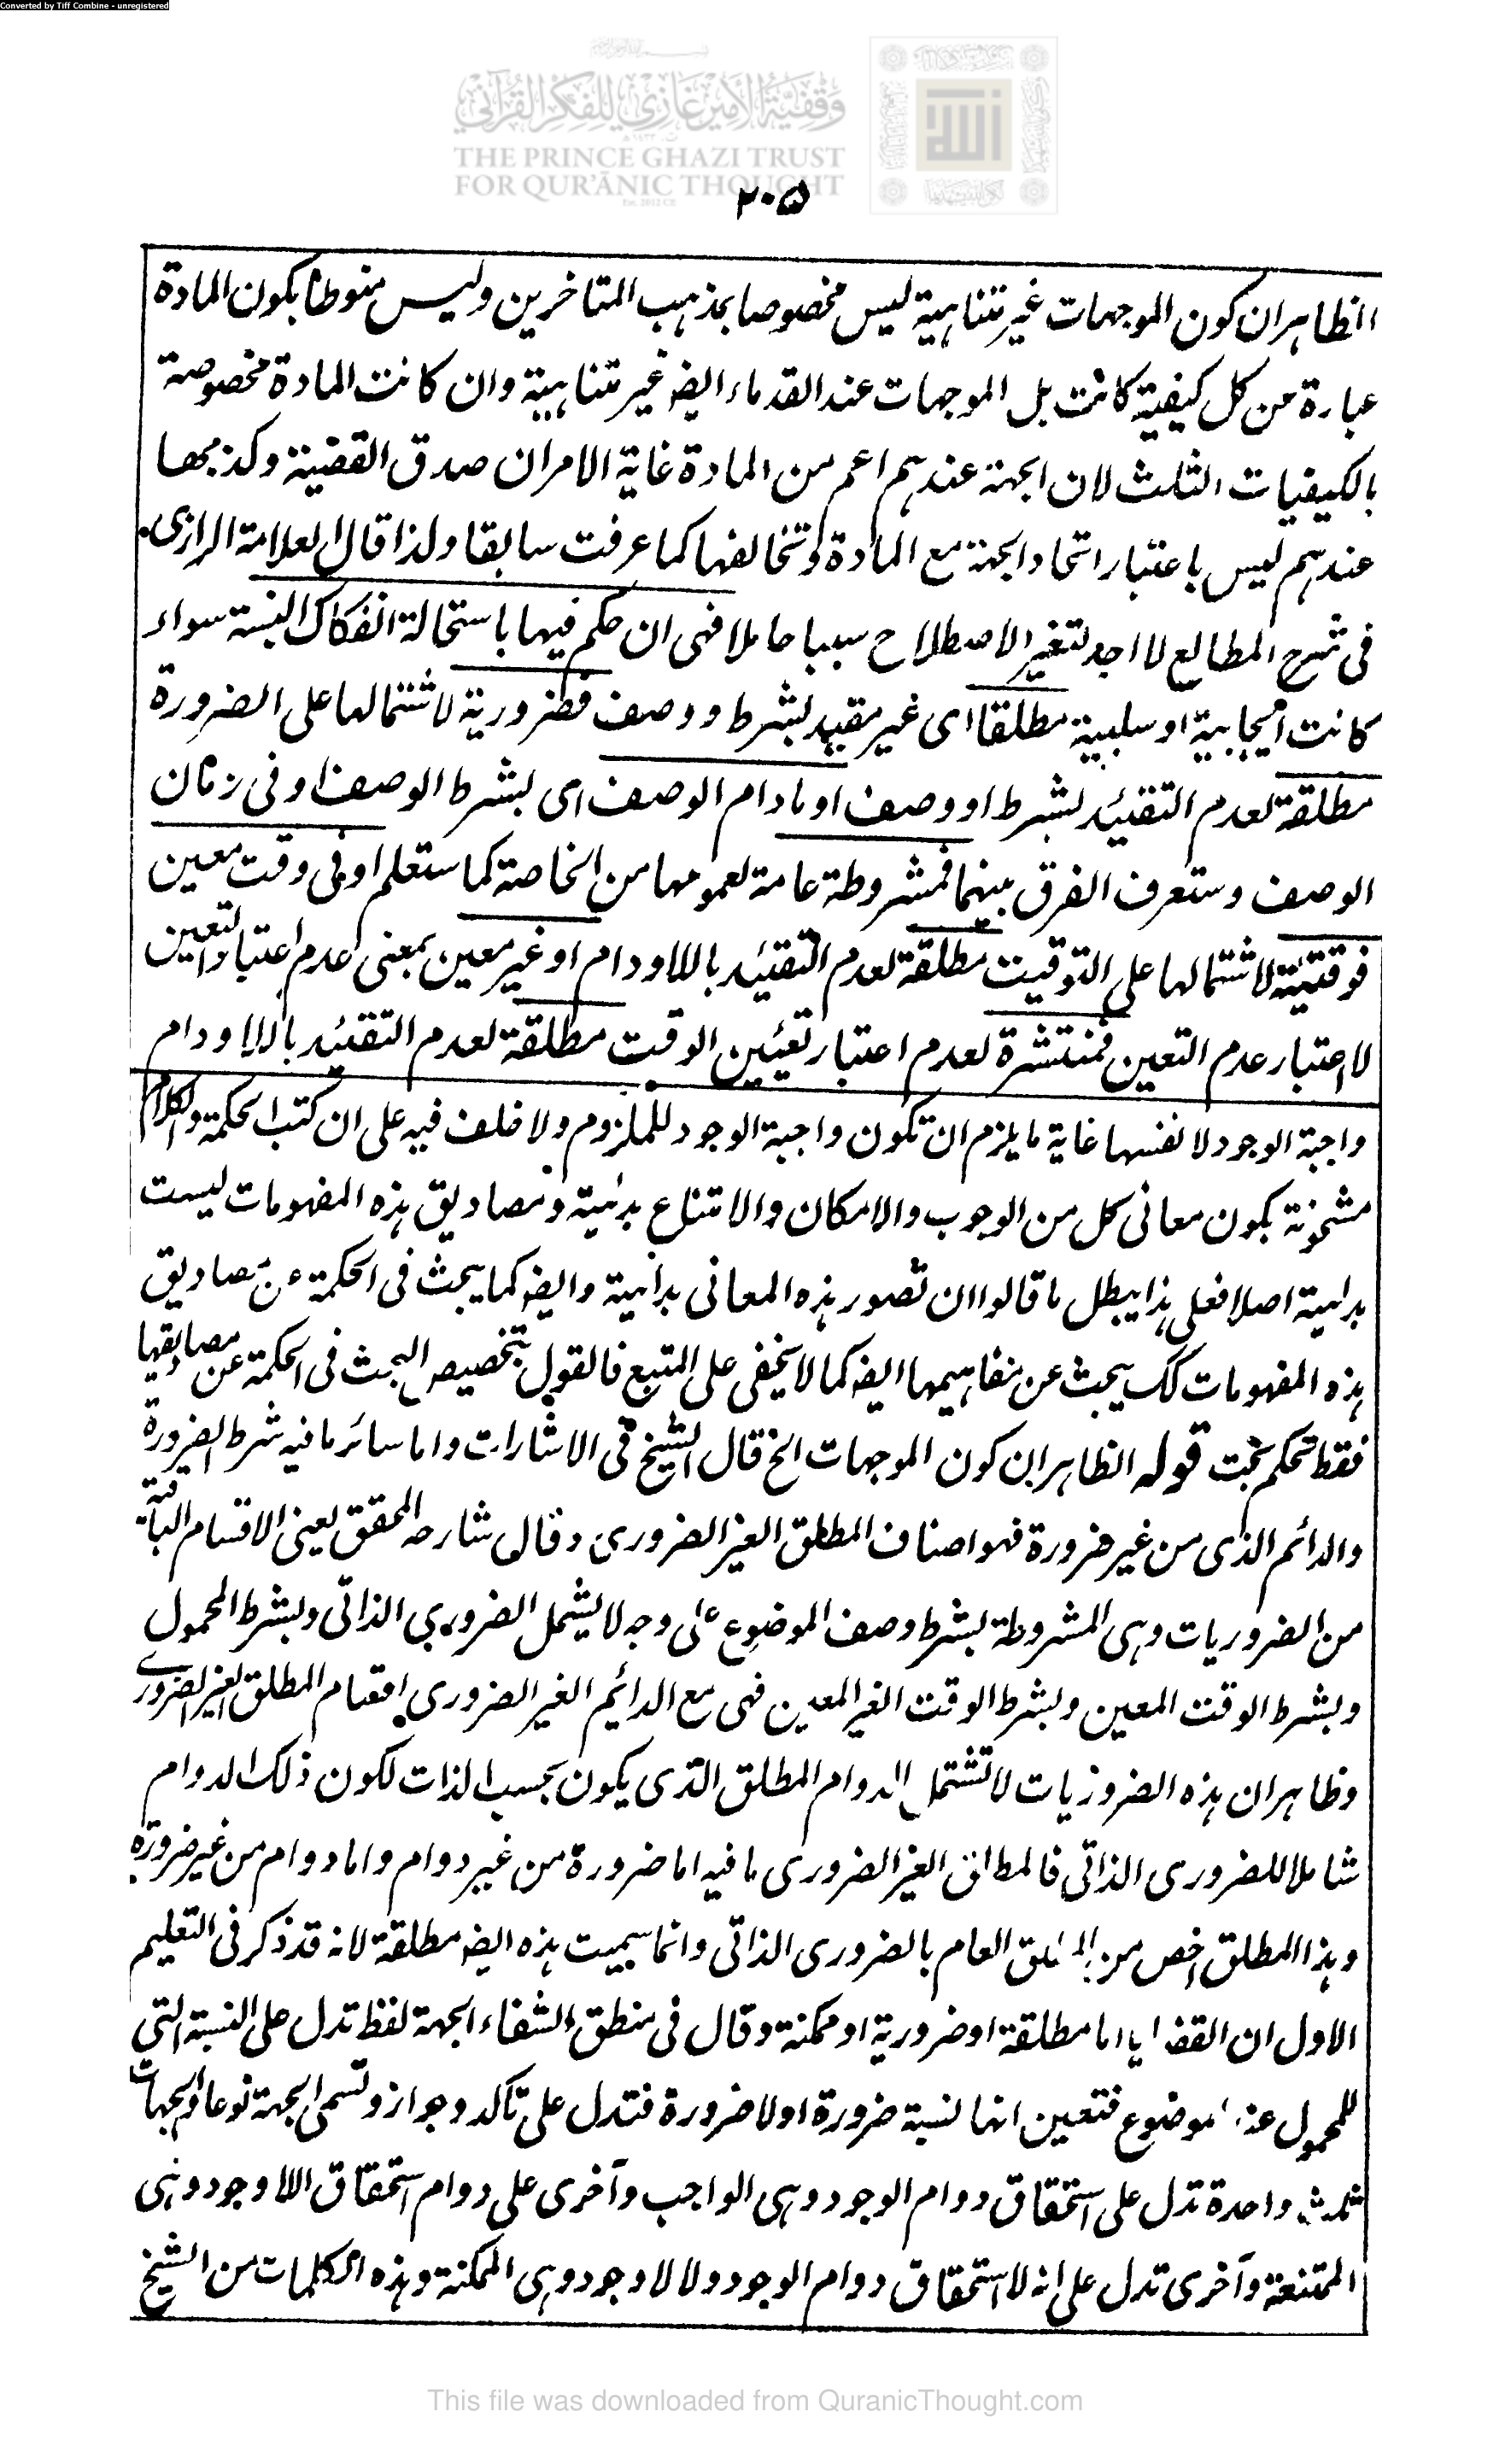 Converted by Tiff Combine - unregistered
وقفية الأمير غازي للفكر القرآني
THE PRINCE GHAZI TRUST
FOR QUR'ĀNIC THOUGHT
٢٠٥
الظاہران کون الموجہات غیر متناہیة لیس مخصوصا بمذہب المتاخرین ولیس منوطا بکون المادة
عبارة عن کل کیفیة کانت بل الموجہات عند القدماء ایضہ غیر متناہیة وان کانت المادة مخصوصة
بالکیفیات الثلث لان الجہة عندہم اعم من المادة غایة الامران صدق القضیة وکذبھا
عندہم لیس باعتبار اتحاد الجہة مع المادة وتخالفہا کما عرفت سابقا ولذا قال العلامة الرازی
فی شرح المطالع لا اجد لتغیر الاصطلاح سببا حاملا فہی ان حکم فیہا باستحالة انفکاک النسبة سواء
کانت ایجابیة او سلبیة مطلقا ای غیر مقید بشرط ووصف فضروریة لاشتمالہا علی الضرورة
مطلقة لعدم التقئید بشرط او وصف او مادام الوصف ای بشرط الوصف او فی زمان
الوصف وستعرف الفرق بینہما فمشروطة عامة لعمومہا من الخاصة کما ستعلم او فی وقت معین
فوقتیة لاشتمالہا علی التوقیت مطلقة لعدم التقئید باللاودام او غیر معین بمعنی عدم اعتبار التعین
لا اعتبار عدم التعین فمنتشرة لعدم اعتبار تعئین الوقت مطلقة لعدم التقئید باللاودام
واجبة الوجود لانفسہا غایة ما یلزم ان تکون واجبة الوجود للملزوم ولا خلف فیہ علی ان کتب الحکمة والکلام
مشحونة بکون معانی کل من الوجوب والامکان والامتناع بدئیة ومصادیق ہذہ المفہومات لیست
بداہیة اصلا فعلی ہذا یبطل ما قالوا ان تصور ہذہ المعانی بداہیة وایضہ کما یبحث فی الحکمة عن مصادیق
ہذہ المفہومات کک یبحث عن مفاہیمہا ایضہ کما لا یخفی علی المتبع فالقول بتخصیص البحث فی الحکمة عن مصادیقہا
فقط تحکم بحت قولہ الظاہر ان کون الموجہات الخ قال الشیخ فی الاشارات واما سائر ما فیہ شرط الضرورة
والدائم الذی من غیر ضرورة فہو اصناف المطلق الغیر الضروری وقال شارحہ المحقق یعنی الاقسام الباقیة
من الضروریات وہی المشروطة بشرط وصف الموضوع علی وجہ لا یشمل الضروری الذاتی وبشرط المحمول
وبشرط الوقت المعین وبشرط الوقت الغیر المعین فہی مع الدائم الغیر الضروری اقسام المطلق الغیر الضروری
وظاہران ہذہ الضروریات لا تشتمل الدوام المطلق الذی یکون بحسب الذات لکون ذلک الدوام
شاملا للضروری الذاتی فالمطلق الغیر الضروری ما فیہ اما ضرورة من غیر دوام واما دوام من غیر ضرورة
وہذا المطلق اخص من المطلق العام بالضروری الذاتی وانما سمیت ہذہ ایضہ مطلقة لانہ قد ذکر فی التعلیم
الاول ان القضایا اما مطلقة او ضروریة او ممکنة وقال فی منطق الشفاء الجہة لفظ تدل علی النسبة التی
للمحمول عند الموضوع فتعین انہا نسبة ضرورة او لا ضرورة فتدل علی تاکد وجواز وتسمی الجہة نوعا والجہات
ثلث واحدة تدل علی استحقاق دوام الوجود وہی الواجب وآخری علی دوام استحقاق اللاوجود وہی
الممتنعة وآخری تدل علی انہ لا استحقاق دوام الوجود ولا لا وجود وہی الممکنة وہذہ الکلمات من الشیخ
This file was downloaded from QuranicThought.com